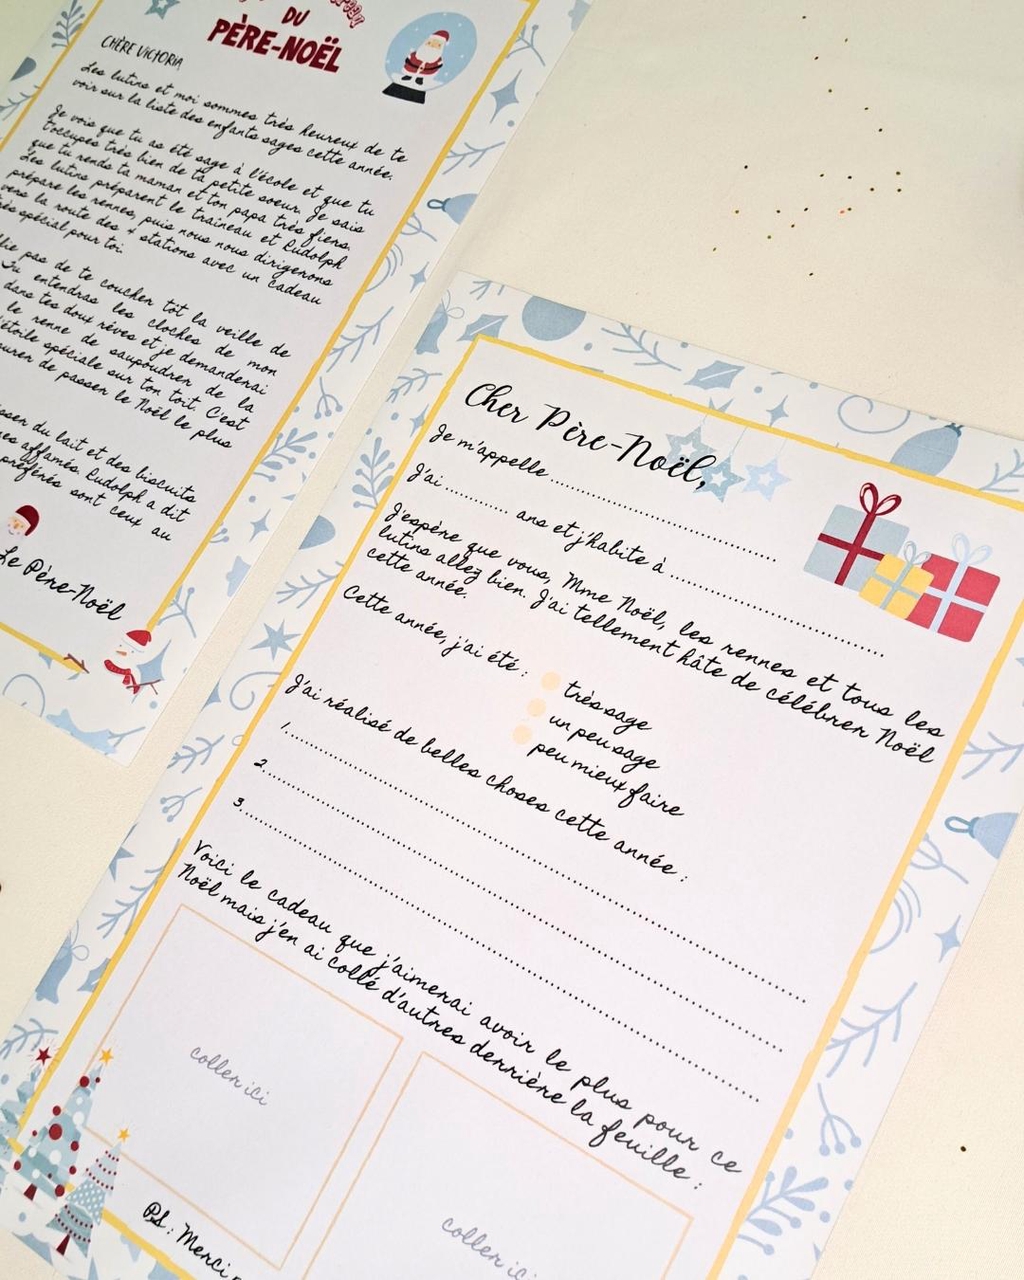 DU
PÈRE-NOËL
CHÈRE VICTORIA
Les lutins et moi sommes très heureux de te
voir sur la liste des enfants sages cette année.
Je vois que tu as été sage à l'école et que tu
t'occupes très bien de ta petite soeur. Je sais
que tu rends ta maman et ton papa très fiers.
Les lutins préparent le traîneau et Rudolph
prépare les rennes, puis nous nous dirigerons
vers la route des 4 stations avec un cadeau
très spécial pour toi.
pas de te coucher tôt la veille de
Tu entendras les cloches de mon
dans tes doux rêves et je demanderai
le renne de saupoudrer de la
d'étoile spéciale sur ton toit. C'est
de passer le Noël le plus
du lait et des biscuits
affamés. Rudolph a dit
préférés sont ceux au
Le Père-Noël
Cher Père-Noël,
Je m'appelle
J'ai ans et j'habite à
J'espère que vous, Mme Noël, les rennes et tous les
lutins allez bien. J'ai tellement hâte de célébrer Noël
cette année.
Cette année, j'ai été :
très sage
un peu sage
peu mieux faire
J'ai réalisé de belles choses cette année :
1.
2.
3.
Voici le cadeau que j'aimerai avoir le plus pour ce
Noël mais j'en ai collé d'autres derrière la feuille :
coller ici
coller ici
P.S : Merci